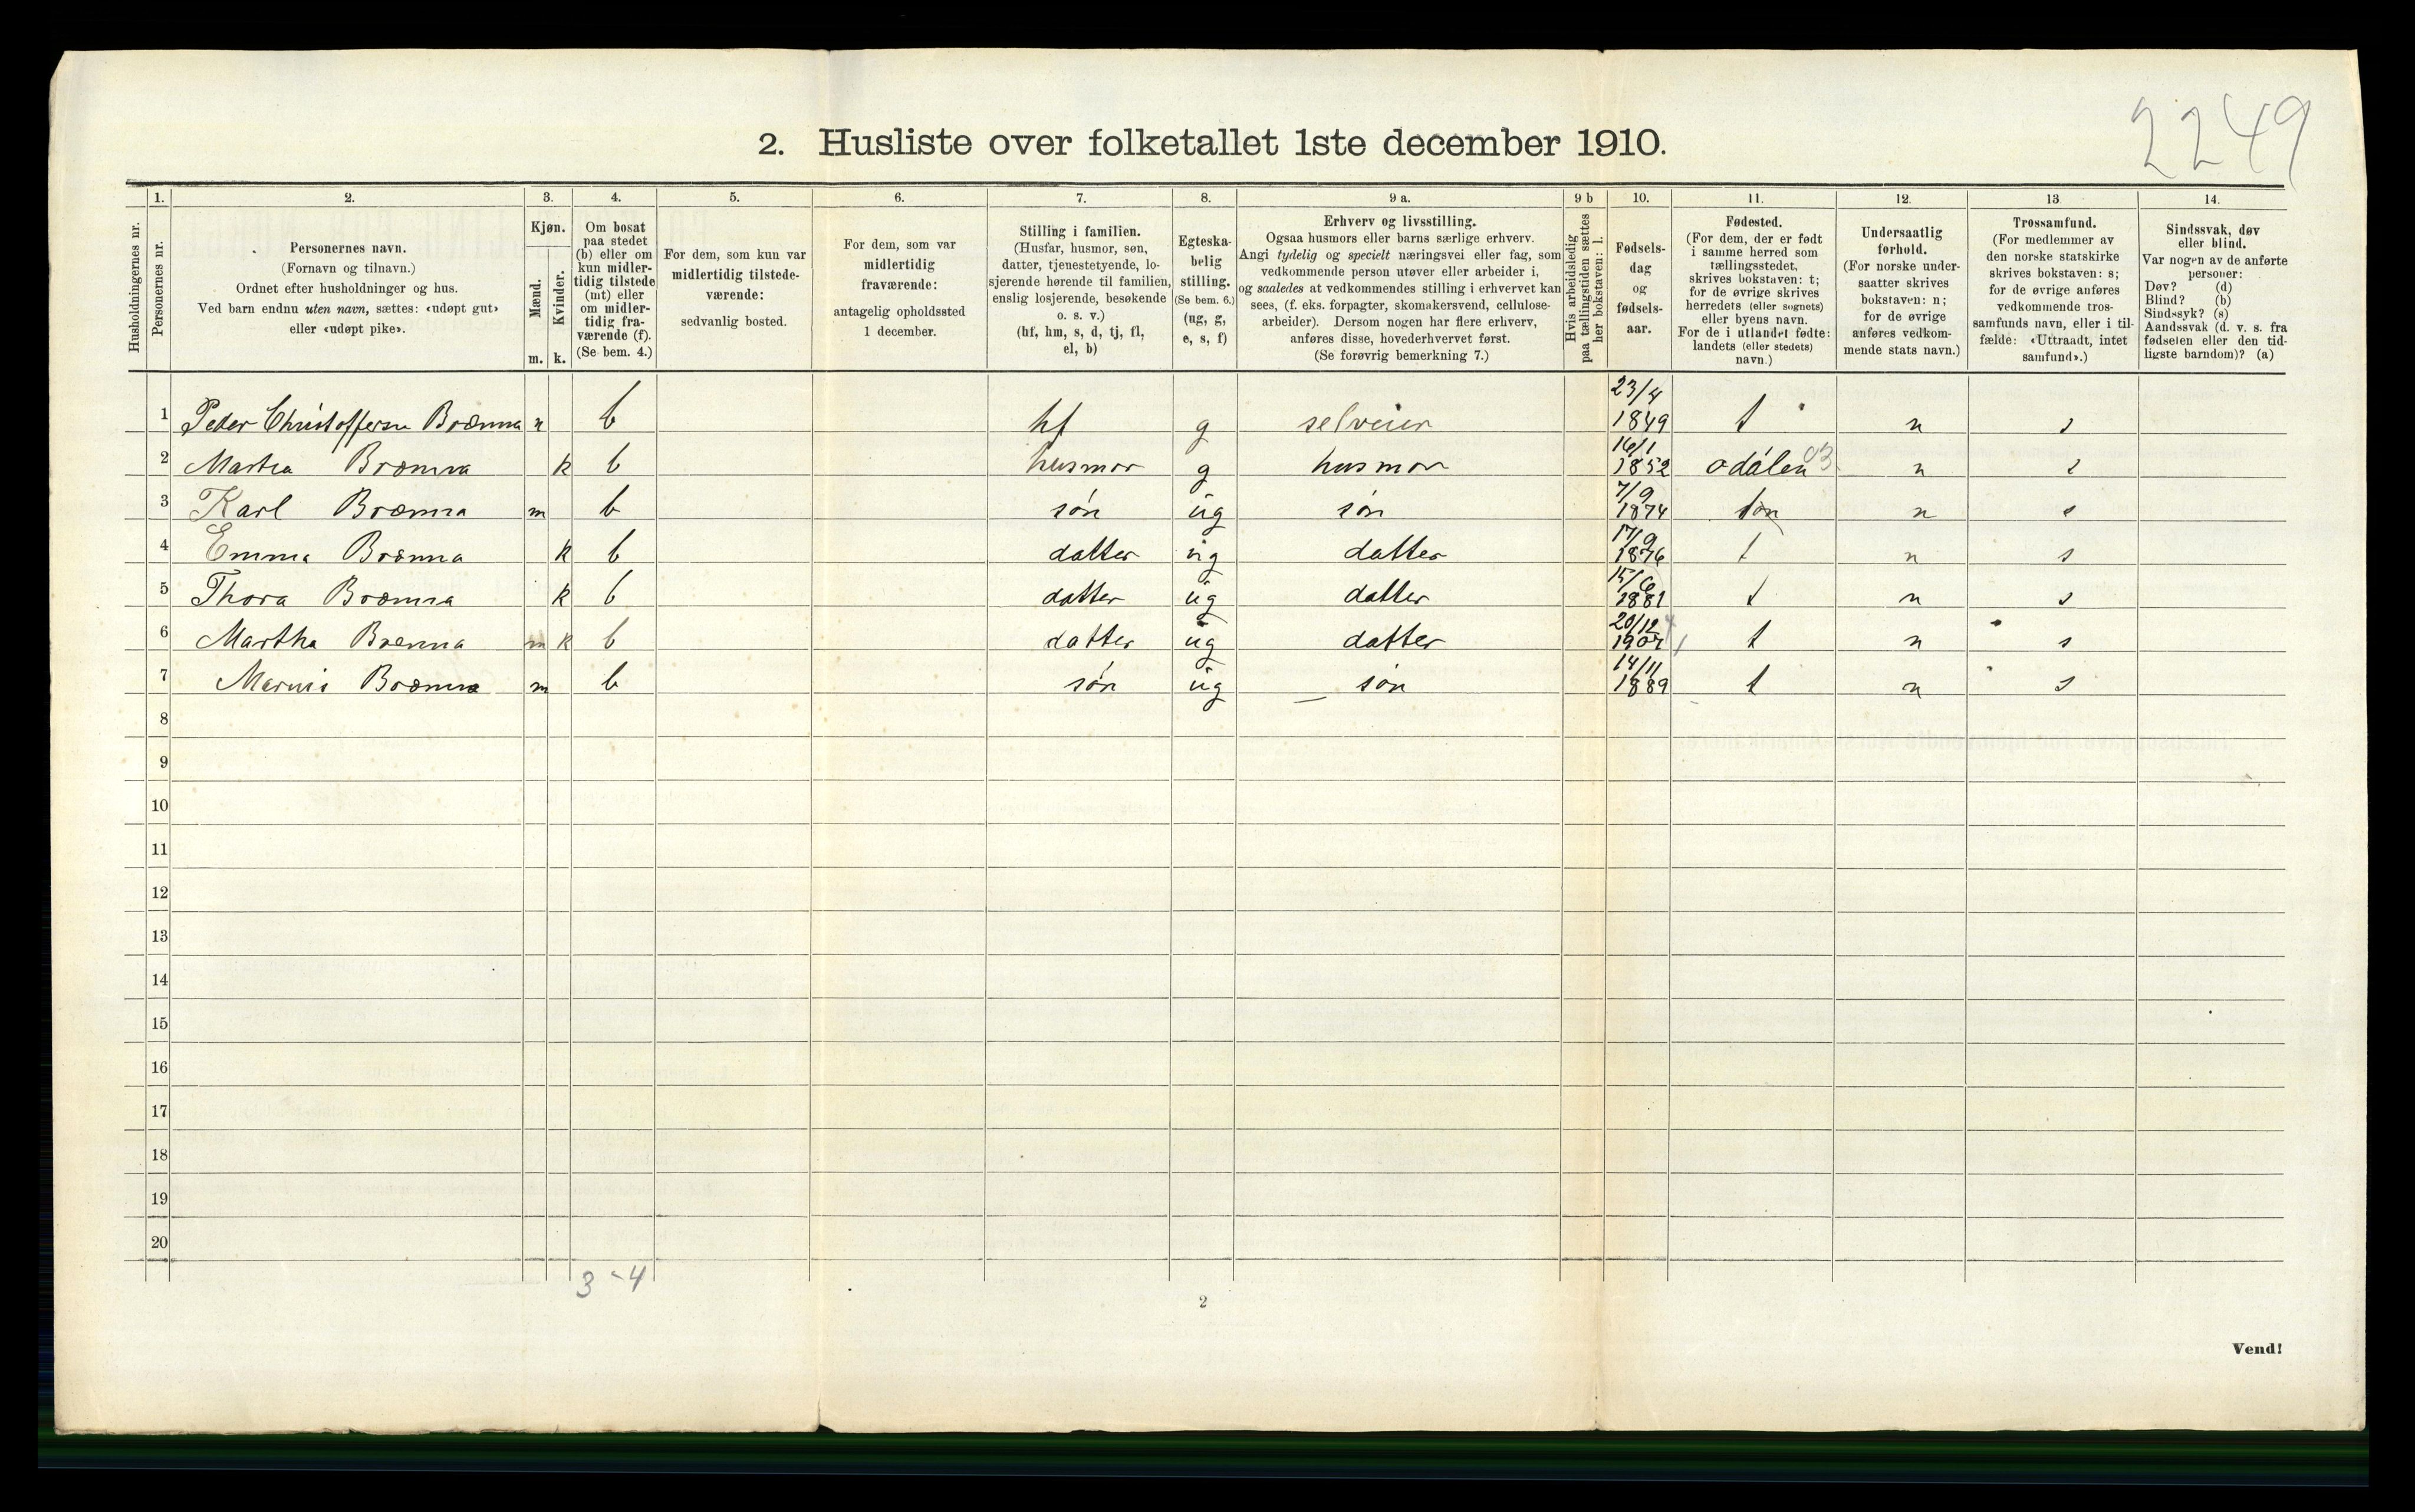 2249
2. Husliste over folketallet 1ste december 1910.
1. 2. 3. 4. 5. 6. 7. 8. 9 a. 9 b 10. 11. 12. 13 14.
Husholdningernes nr.
Personernes nr.
Personernes navn.
(Fornavn og tilnavn.)
Ordnet efter husholdninger og hus.
Ved barn endnu uten navn, sættes: «udøpt gut»
eller «udøpt pike».
Kjøn.
Mænd.
Kvinder.
m. k.
Om bosat
paa stedet
(b) eller om
kun midler-
tidig tilstede
(mt) eller
om midler-
tidig fra-
værende (f).
(Se bem. 4.)
For dem, som kun var
midlertidig tilstede-
værende:
sedvanlig bosted.
For dem, som var
midlertidig
fraværende:
antagelig opholdssted
1 december.
Stilling i familien.
(Husfar, husmor, søn,
datter, tjenestetyende, lo-
sjerende hørende til familien,
enslig losjerende, besøkende
o. s. v.)
(hf, hm, s, d, tj, fl,
el, b)
Egteska-
belig
stilling.
(Se bem. 6.)
(ug, g,
e, s, f)
Erhverv og livsstilling.
Ogsaa husmors eller barns særlige erhverv.
Angi tydelig og specielt næringsvei eller fag, som
vedkommende person utøver eller arbeider i,
og saaledes at vedkommendes stilling i erhvervet kan
sees, (f. eks. forpagter, skomakersvend, cellulose-
arbeider). Dersom nogen har flere erhverv,
anføres disse, hovederhvervet først.
(Se forøvrig bemerkning 7.)
Hvis arbeidsledig
paa tællingstiden sættes
her bokstaven: l.
Fødsels-
dag
og
fødsels-
aar.
Fødested.
(For dem, der er født
i samme herred som
tællingsstedet,
skrives bokstaven: t;
for de øvrige skrives
herredets (eller sognets)
eller byens navn.
For de i utlandet fødte:
landets (eller stedets)
navn.)
Undersaatlig
forhold.
(For norske under-
saatter skrives
bokstaven: n;
for de øvrige
anføres vedkom-
mende stats navn.)
Trossamfund.
(For medlemmer av
den norske statskirke
skrives bokstaven: s;
for de øvrige anføres
vedkommende tros-
samfunds navn, eller i til-
fælde: «Uttraadt, intet
samfund».)
Sindssvak, døv
eller blind.
Var nogen av de anførte
personer:
Døv? (d)
Blind? (b)
Sindssyk? (s)
Aandssvak (d. v. s. fra
fødselen eller den tid-
ligste barndom)? (a)
1 Peder Christoffersen Brænna b hf g selveier 23/4 1849 t n s
2 Brænna k b husmor g husmor 16/1 1852 odalen 03 n s
3 Karl Brænna m b søn ug søn 7/9 1874 n s
4 Emma Brænna k b datter ug datter 17/9 1876 t n s
5 Thora Brænna k b datter ug datter 15/6 1881 t n s
6 Martha Brænna m k b datter ug datter 20/12 t n s
7 Brænna m b søn ug søn 14/11 1889 t n s
8
9
10
11
12
13
14
15
16
17
18
19
20
3 - 4
2
Vend!